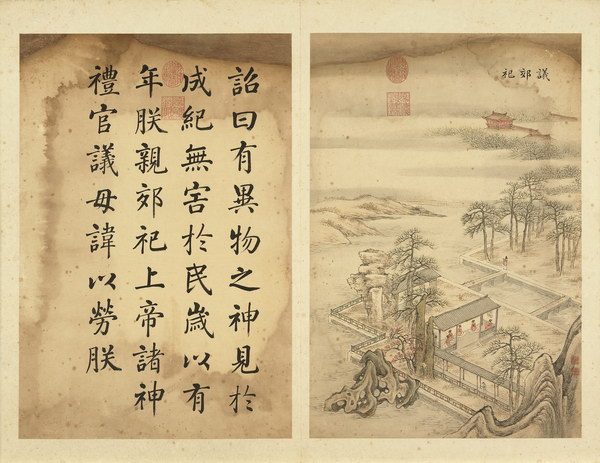 議郊祀
詔曰有異物之神見於
成紀無害於民歲以有
年朕親郊祀上帝諸神
禮官議毋諱以勞朕